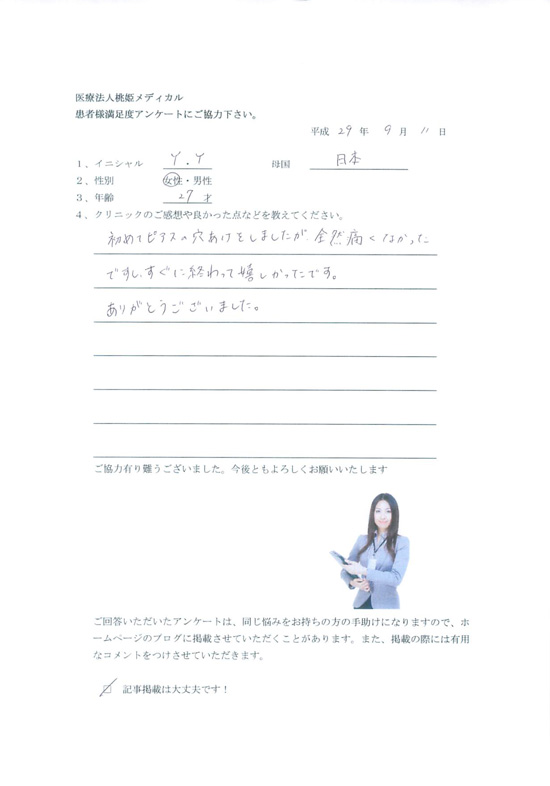 医療法人桃姫メディカル
患者様満足度アンケートにご協力下さい。
平成 29 年 9 月 11 日
1、イニシャル Y.Y 母国 日本
2、性別 女性・男性
3、年齢 27 才
4、クリニックのご感想や良かった点などを教えてください。
初めてピアスの穴あけをしましたが、全然痛くなかった
ですし、すぐに終わって嬉しかったです。
ありがとうございました。
ご協力有り難うございました。今後ともよろしくお願いいたします
ご回答いただいたアンケートは、同じ悩みをお持ちの方の手助けになりますので、ホ
ームページのブログに掲載させていただくことがあります。また、掲載の際には有用
なコメントをつけさせていただきます。
☑ 記事掲載は大丈夫です！